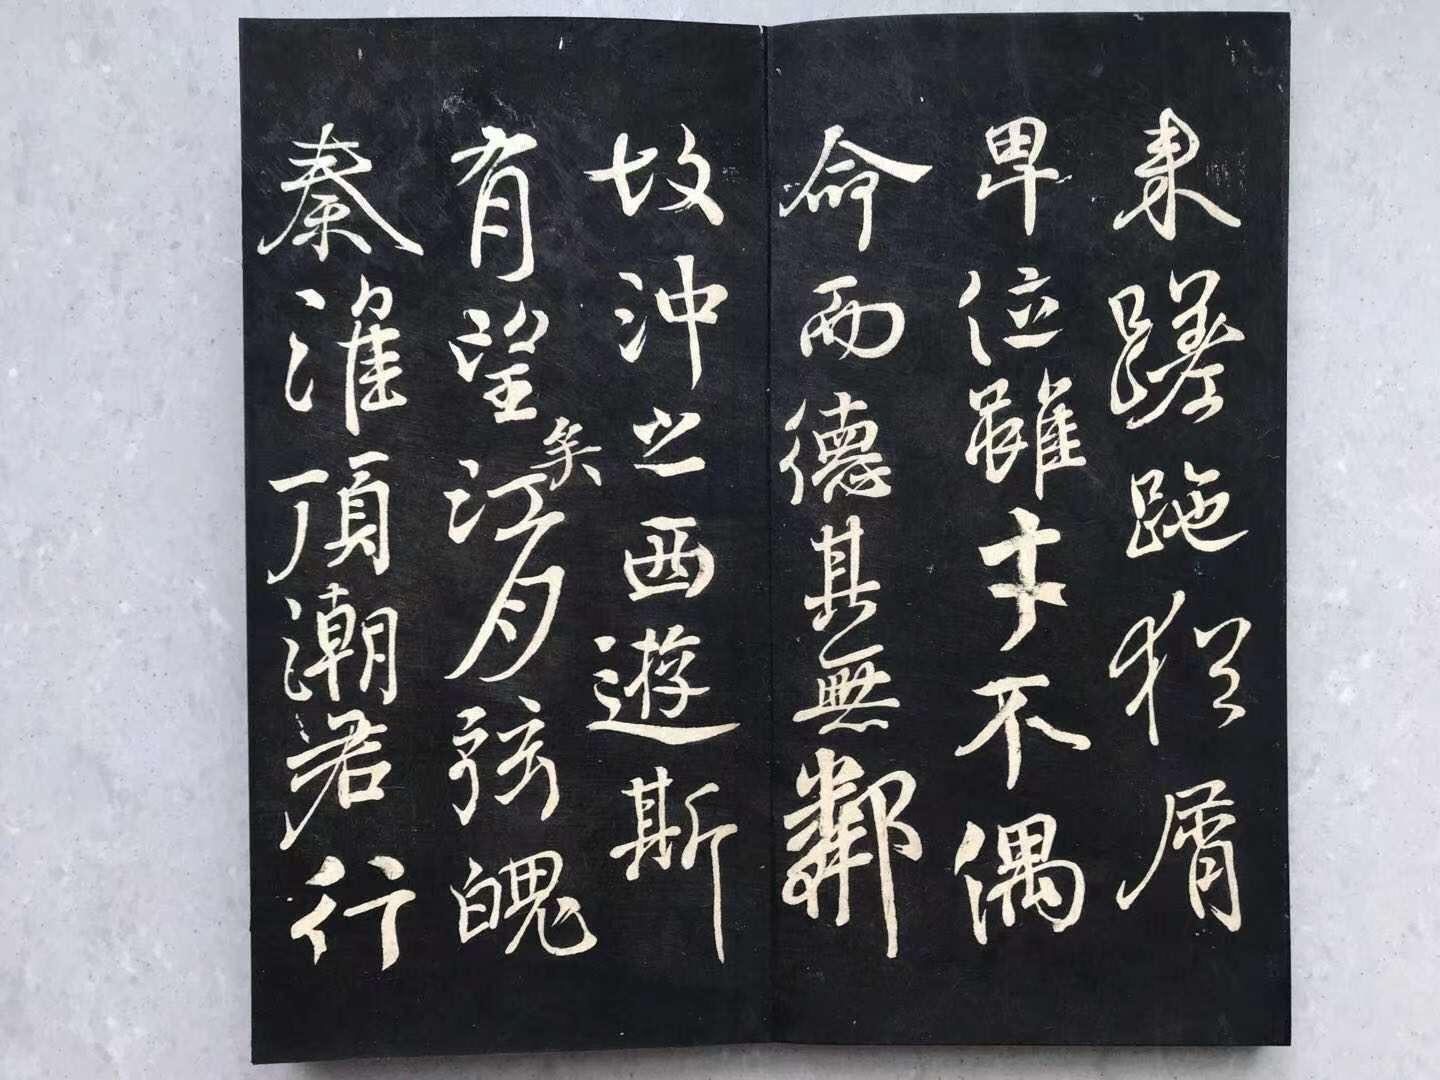 来蹉跎猶屑
卑位雖才不偶
命而德其無鄰
故沖之西遊斯
有望矣江月弦魄
秦淮頂潮君行